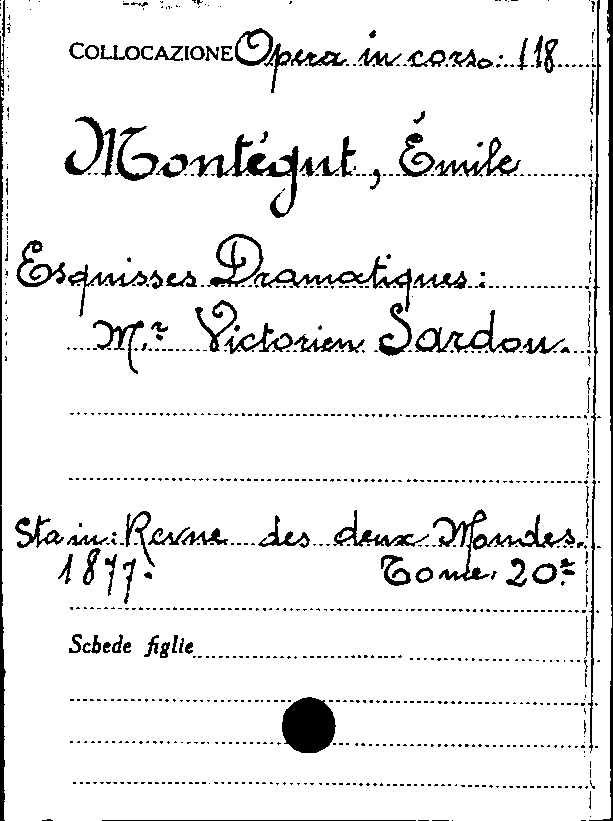 COLLOCAZIONE Opera in corso: 118
Montégut, Émile
Esquisses Dramatiques:
M.r Victorien Sardou.
Sta in: Revue des deux Mondes.
1877. Tome. 20e
Schede figlie